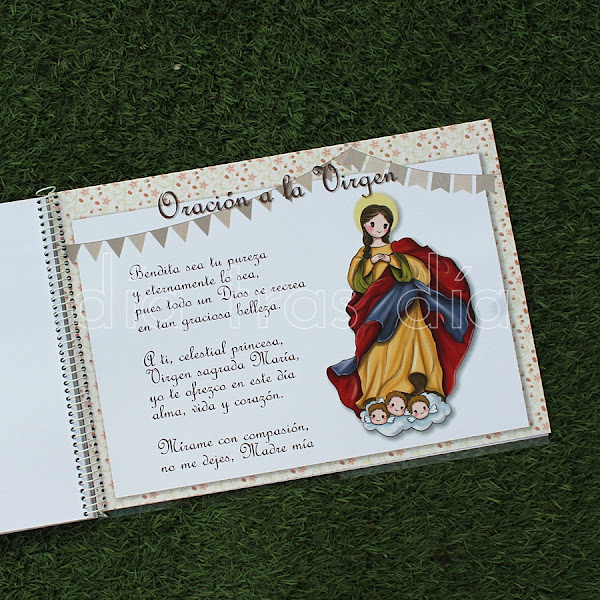 Oración a la Virgen
Bendita sea tu pureza
y eternamente lo sea,
pues todo un Dios se recrea
en tan graciosa belleza.
A ti, celestial princesa,
Virgen sagrada María,
yo te ofrezco en este día
alma, vida y corazón.
Mírame con compasión,
no me dejes, Madre mía
día tras día